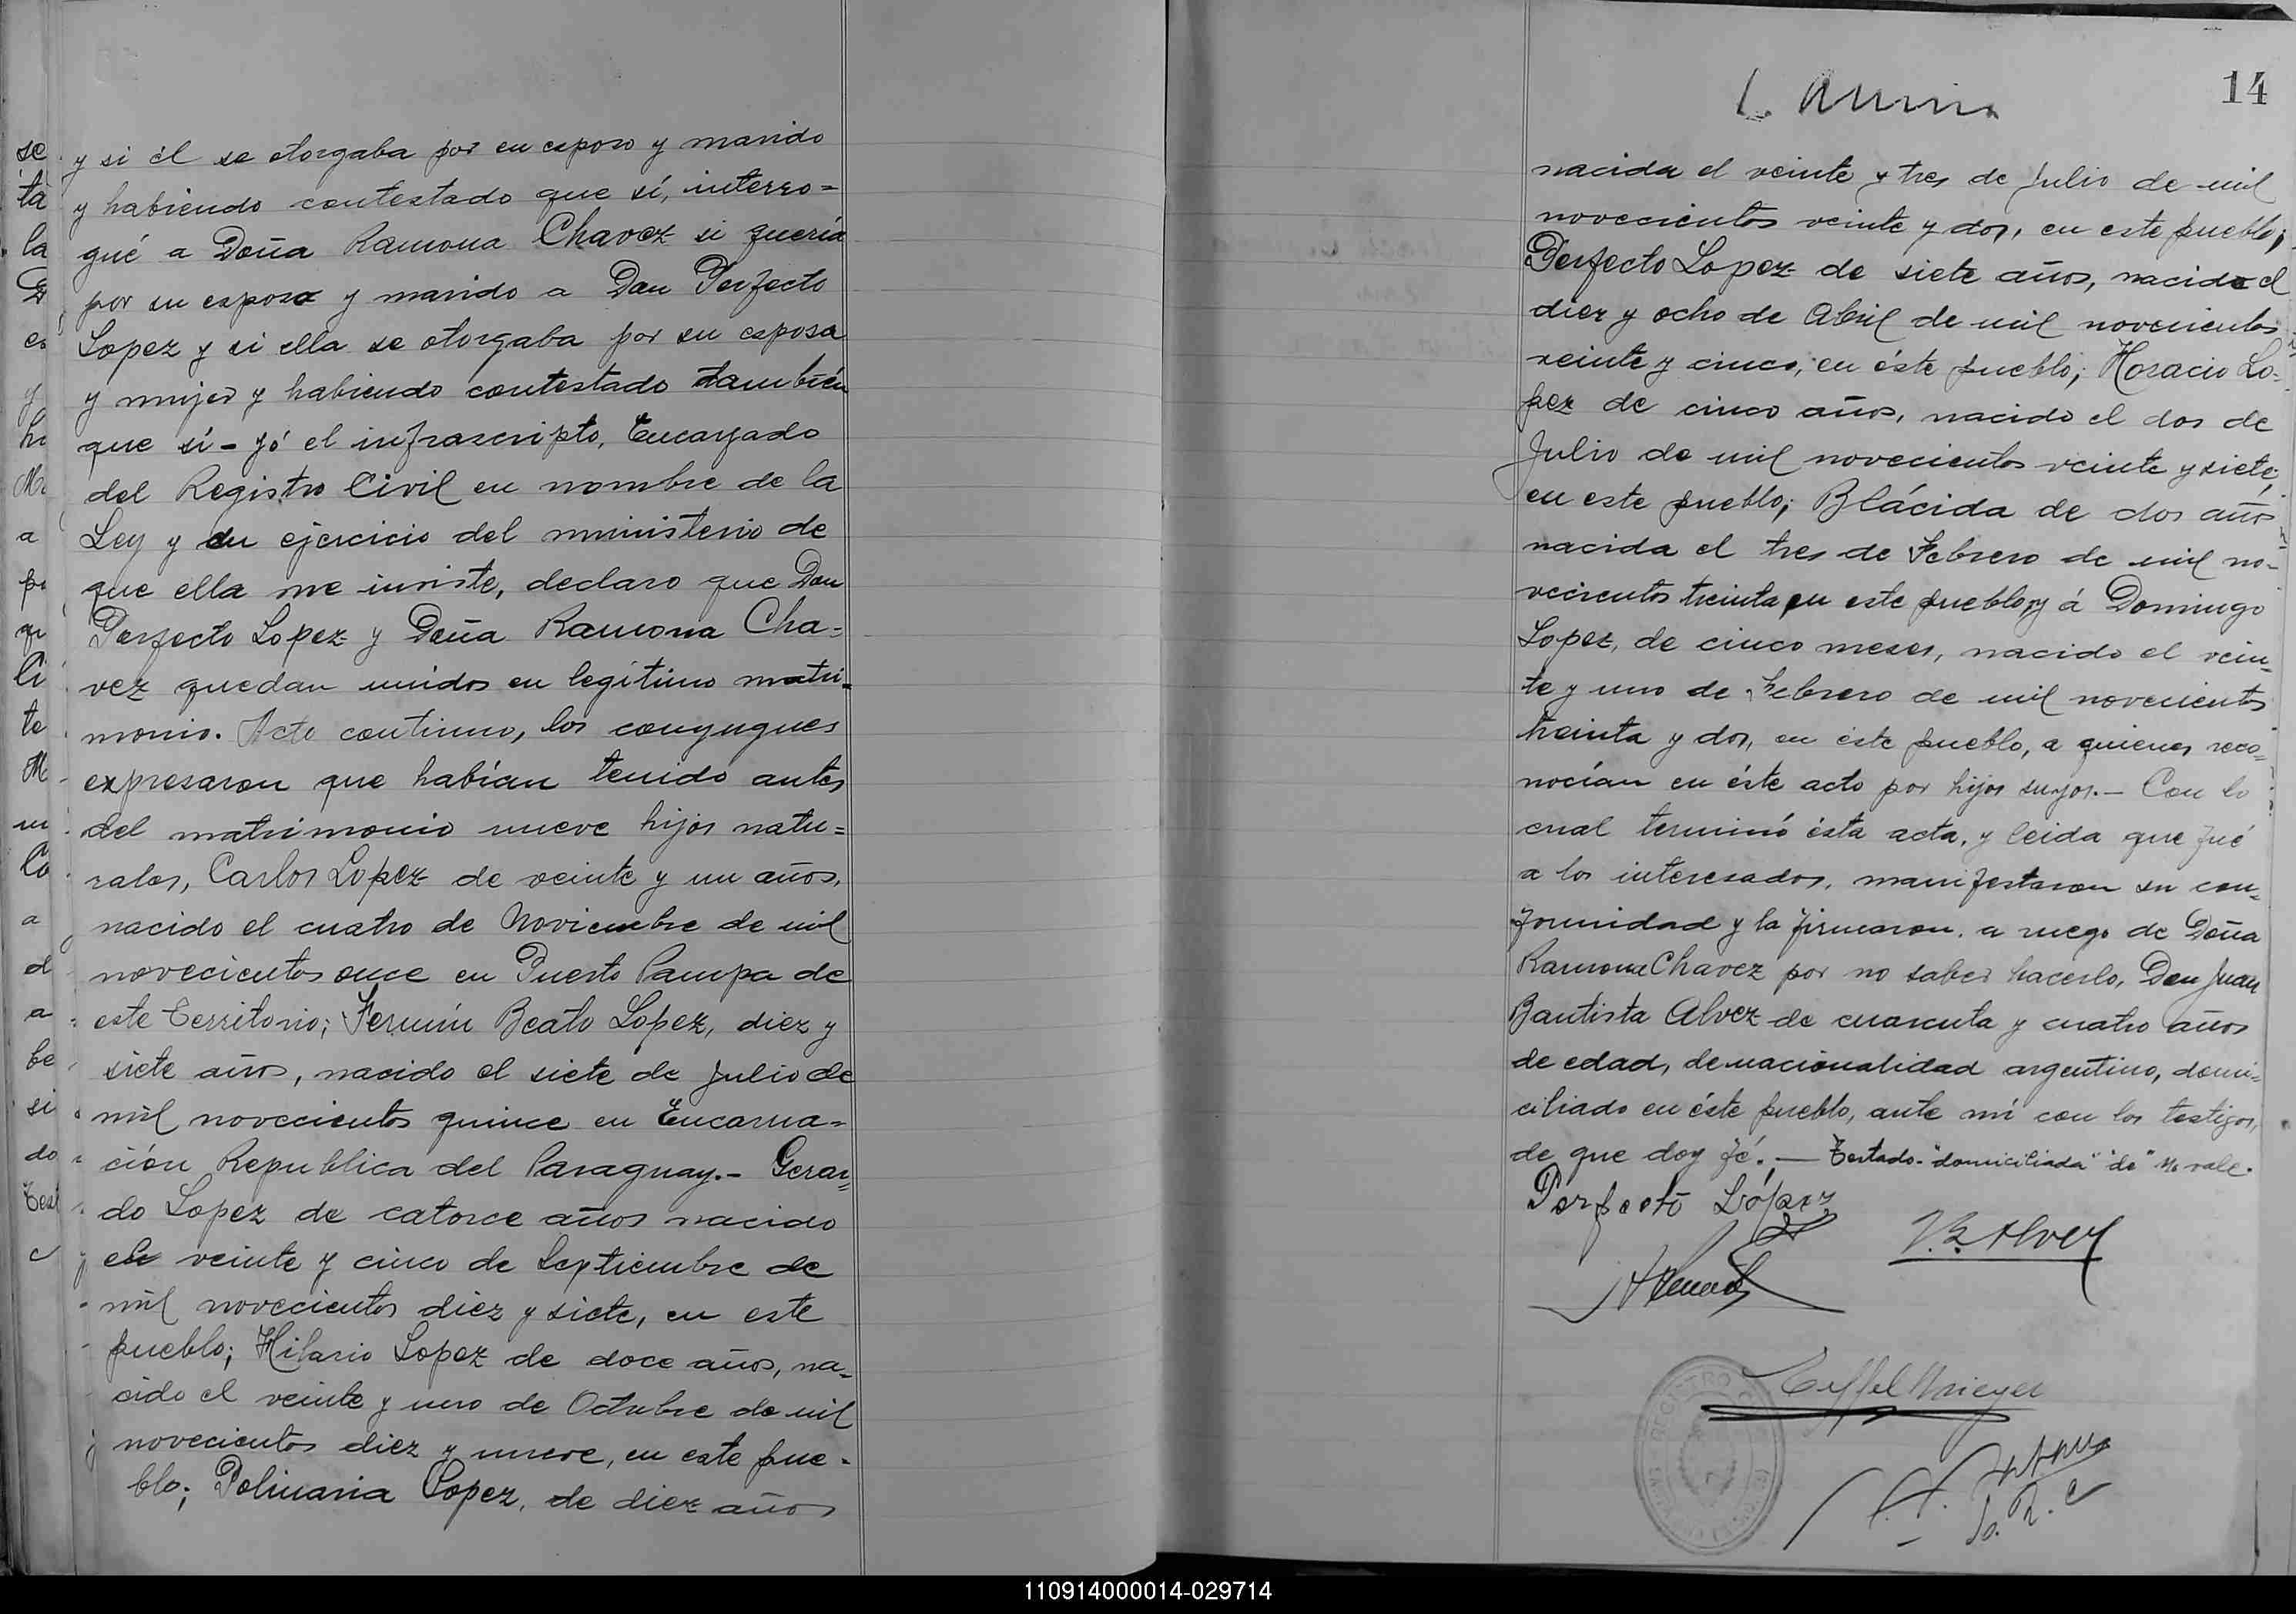 y si él se otorgaba por su esposo y marido
y habiendo contestado que sí, interro=
gué a Doña Ramona Chavez si quería
por su esposo y marido a Don Perfecto
Lopez y si ella se otorgaba por su esposa
y mujer y habiendo contestado también
que sí - yó el infrascripto, Encargado
del Registro Civil en nombre de la
Ley y en ejercicio del ministerio de
que ella me inviste, declaro que Don
Perfecto Lopez y Doña Ramona Cha=
vez quedan unidos en legítimo matri=
monio. Acto continuo, los conyugues
expresaron que habían tenido antes
del matrimonio nueve hijos natu=
rales, Carlos Lopez de veinte y un años,
nacido el cuatro de Noviembre de mil
novecientos once en Puerto Pampa de
este Territorio; Fermín Beato Lopez, diez y
siete años, nacido el siete de Julio de
mil novecientos quince en Encarna=
ción Republica del Paraguay.- Gerar=
do Lopez de catorce años nacido
el veinte y cinco de Septiembre de
mil novecientos diez y siete, en este
pueblo; Hilario Lopez de doce años, na=
cido el veinte y uno de Octubre de mil
novecientos diez y nueve, en este pue=
blo; Polinaria Lopez, de diez años
14
nacida el veinte y tres de Julio de mil
novecientos veinte y dos, en este pueblo;
Perfecto Lopez de siete años, nacido el
diez y ocho de Abril de mil novecientos
veinte y cinco, en éste pueblo; Horacio Lo=
pez de cinco años, nacido el dos de
Julio de mil novecientos veinte y siete,
en este pueblo; Blácida de dos años
nacida el tres de Febrero de mil no=
vecientos treinta, en este pueblo, y á Domingo
Lopez, de cinco meses, nacido el vein=
te y uno de Febrero de mil novecientos
treinta y dos, en éste pueblo, a quienes reco=
nocían en éste acto por hijos suyos.- Con lo
cual terminó ésta acta, y leida que fué
a los interesados, manifestaron su con=
formidad y la firmaron, a ruego de Doña
Ramona Chavez por no saber hacerlo, Don Juan
Bautista Alvez de cuarenta y cuatro años
de edad, de nacionalidad argentino, domi=
ciliado en éste pueblo, ante mí con los testigos,
de que doy fé. — Testado-"domiciliada" "de" No vale.
Perfecto López
J. B. Alvez
REGISTRO
110914000014-029714